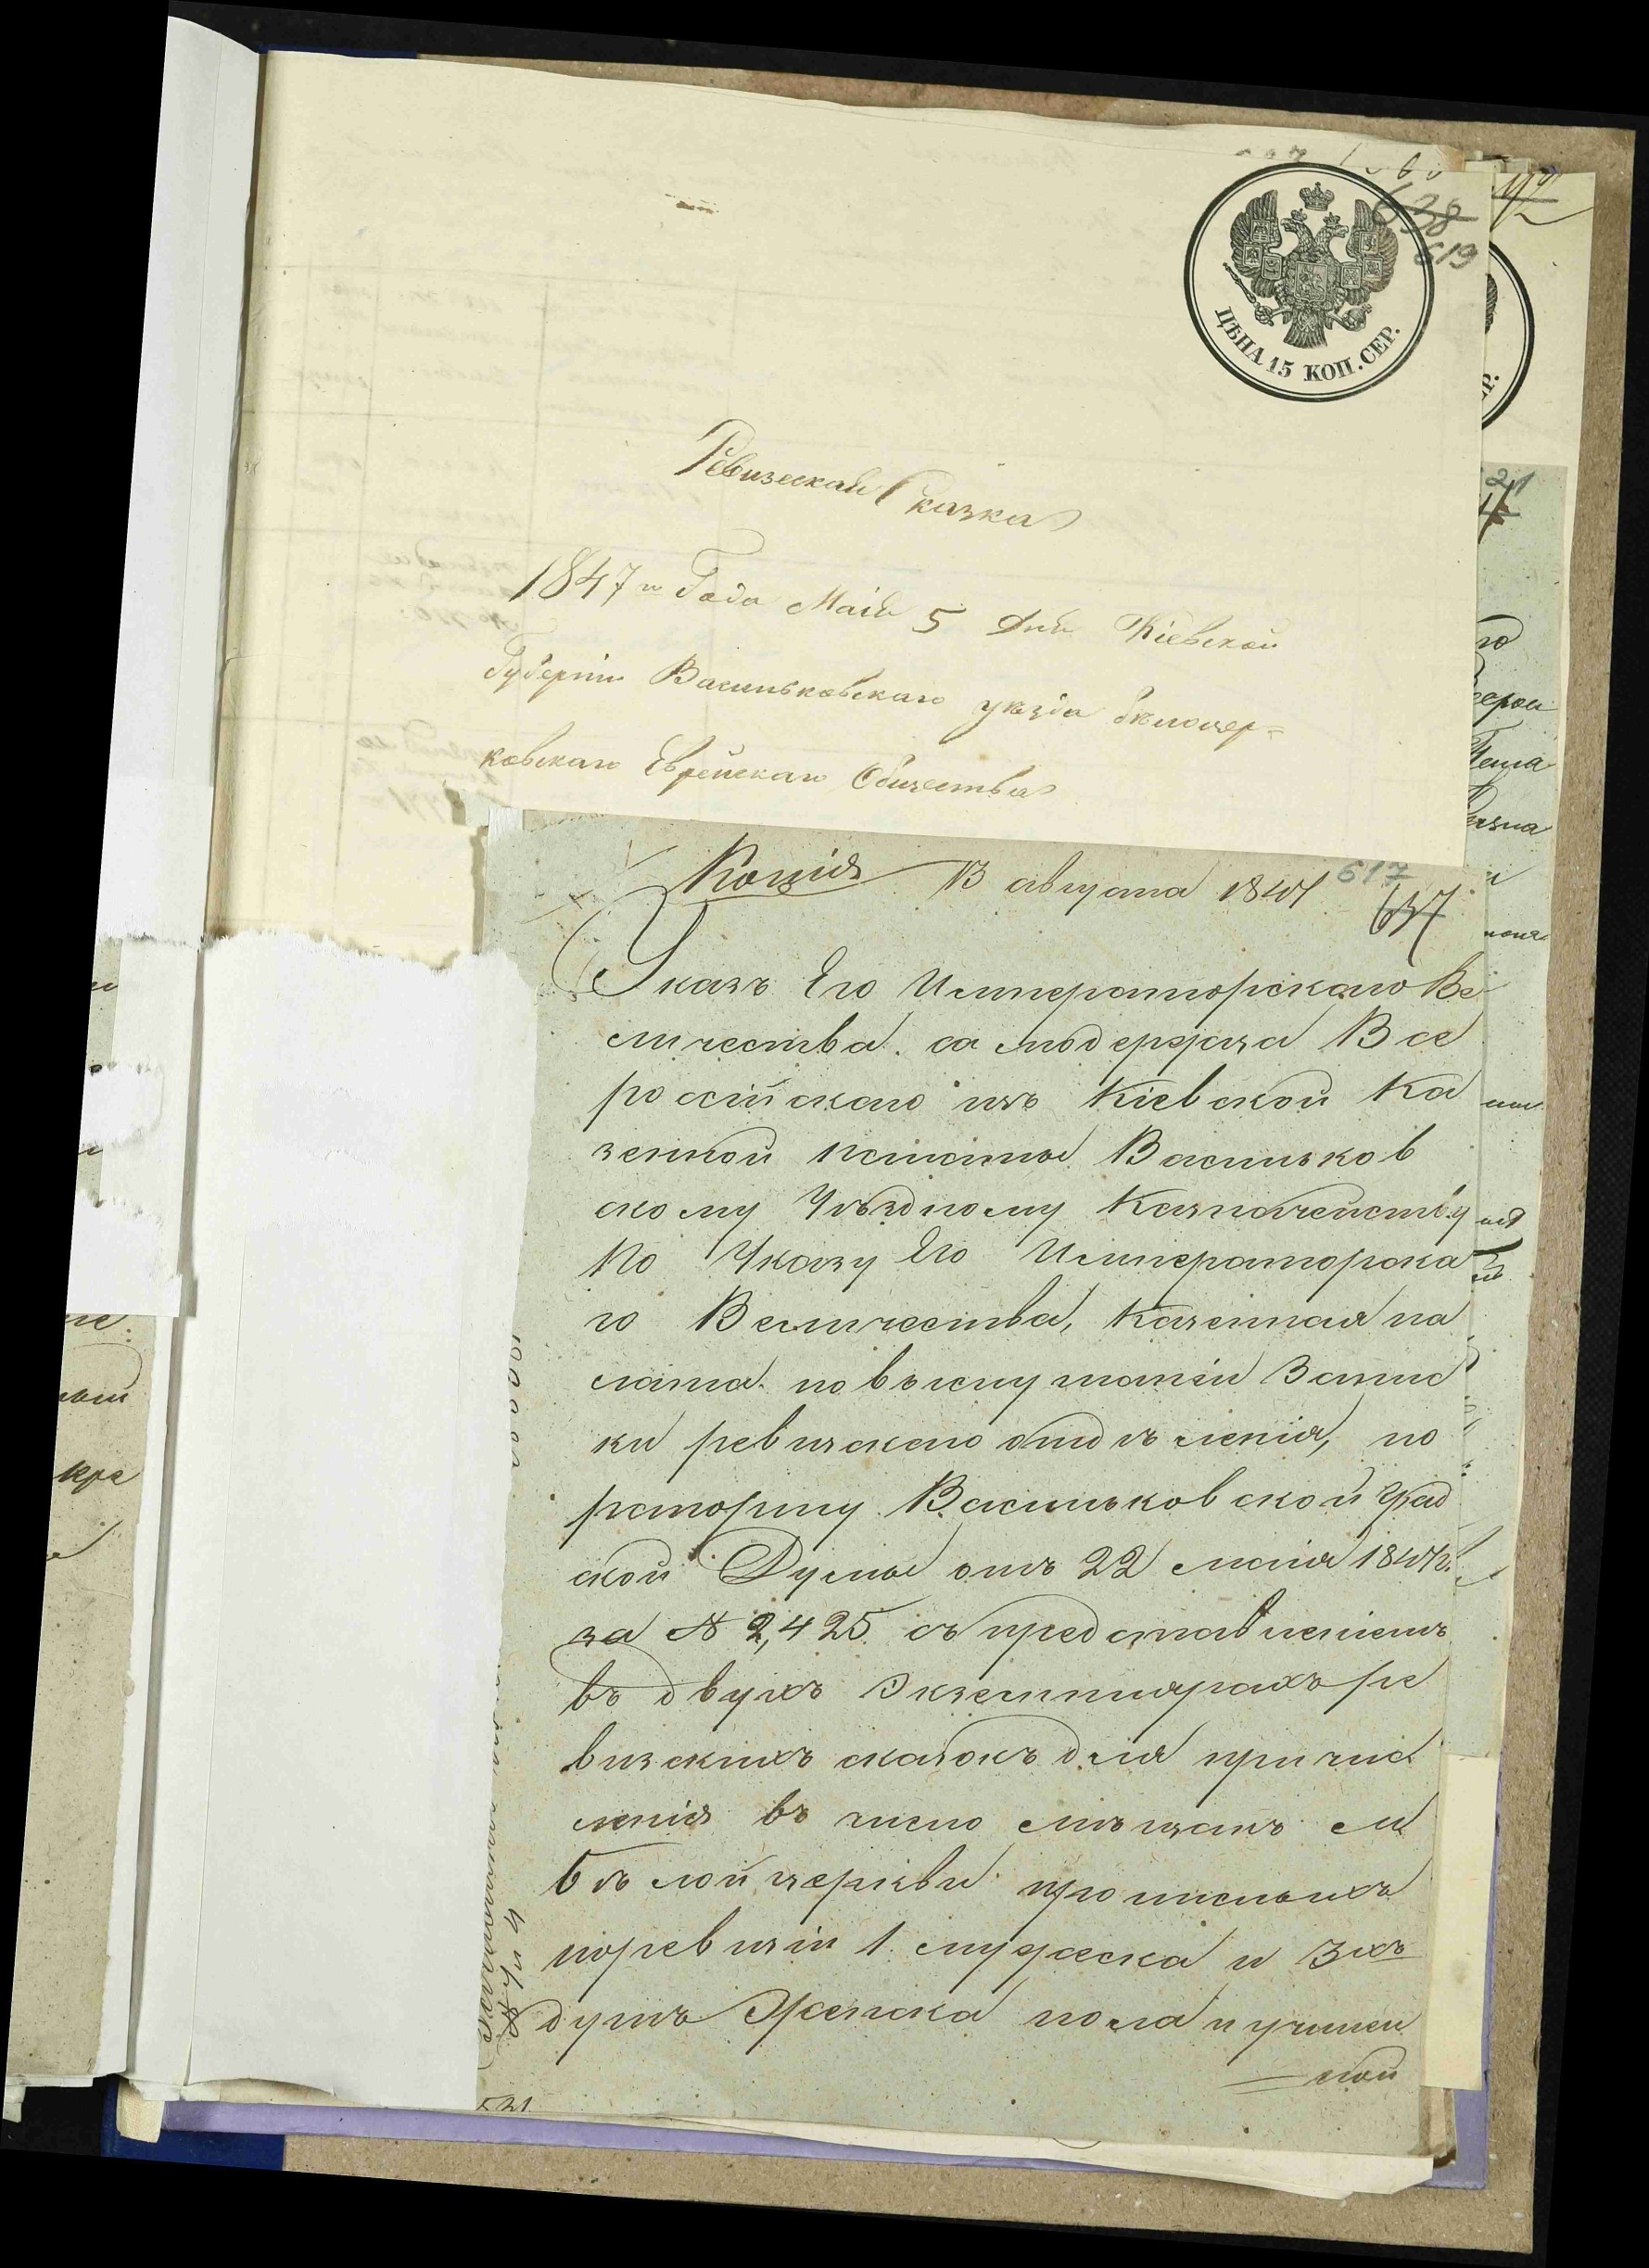 638
619
ЦѢНА 15 КОП. СЕР.
Ревизская Сказка
1847 го Года Маія 5 дня Кіевской
Губерніи Васильковскаго уѣзда Бѣлоцер=
ковскаго Еврейскаго Общества
Копія 13 августа 1847 617
637
Указъ Его Императорскаго Ве
личества самодержца Все
россійскаго изъ Кіевской Ка
зенной палаты Васильков
скому Уѣздному Казначейству
По Указу Его Императорска
го Величества, Казенная па
лата по выслушаніи Запис
ки ревизскаго отдѣленія, по
рапорту Васильковской Град
ской Думы отъ 22 маія 1847 г.
за № 2,425 съ представленіемъ
въ двухъ Экземплярахъ ре
визскихъ сказокъ для причис
ленія въ число мѣщанъ м
Бѣлой церкви прописныхъ
по ревизіи 1 мужеска и 3хъ
душъ Женска пола и учинен
= ной